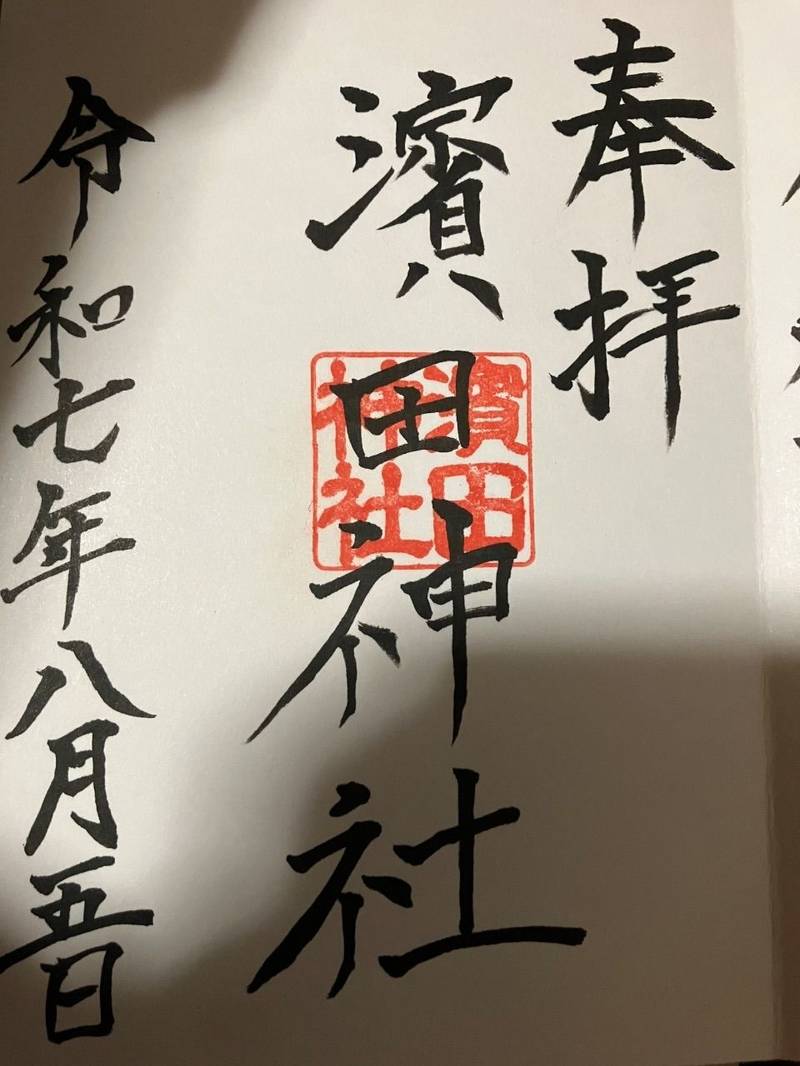 奉拝
濱田神社
濱田
神社
令和七年八月五日